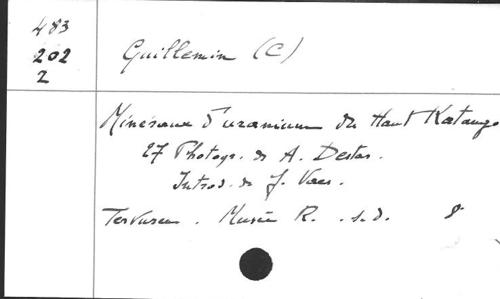 483
202
2
Guillemin (C)
Minéraux d'uranium du Haut Katanga
27 Photogr. de A. Destas.
Introd. de J. Vaes.
Tervuren. Musée R. . s.d. 8°